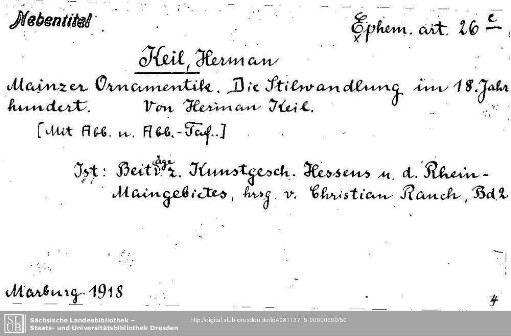 Nebentitel
Ephem. art. 26 c
Keil, Herman
Mainzer Ornamentik. Die Stilwandlung im 18. Jahr
hundert. Von Herman Keil.
[Mit Abb. u. Abb.-Taf.]
Ist: Beiträge z. Kunstgesch. Hessens u. d. Rhein-
Maingebietes, hrsg. v. Christian Rauch, Bd 2
Marburg 1918
4
SLUB
Sächsische Landesbibliothek –
Staats- und Universitätsbibliothek Dresden